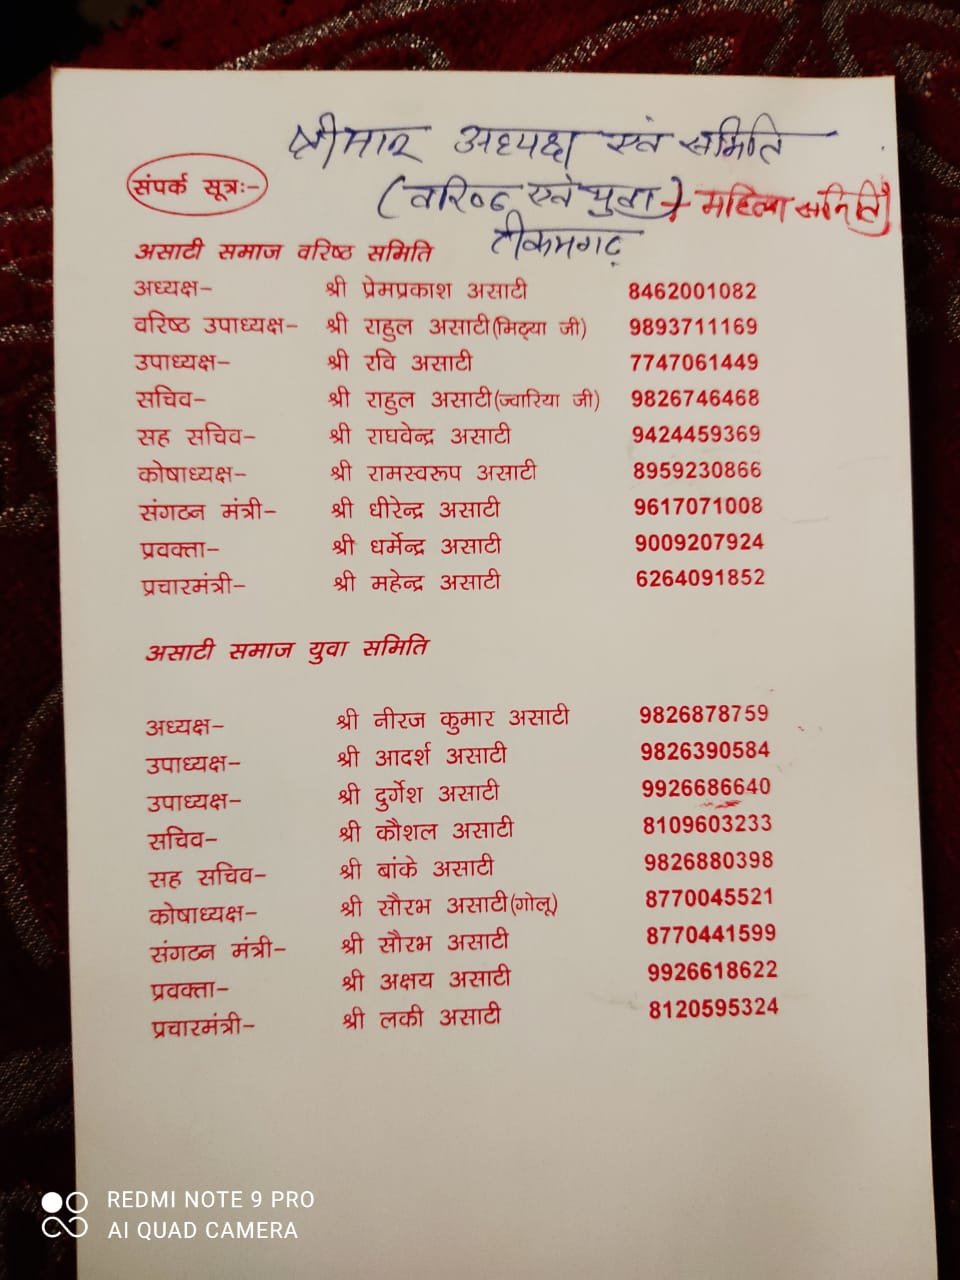 श्रीमान अध्यक्ष एवं समिति
संपर्क सूत्रः-
(वरिष्ठ एवं युवा) + महिला समिति
टीकमगढ़
असाटी समाज वरिष्ठ समिति
अध्यक्ष- श्री प्रेमप्रकाश असाटी 8462001082
वरिष्ठ उपाध्यक्ष- श्री राहुल असाटी(मिठ्या जी) 9893711169
उपाध्यक्ष- श्री रवि असाटी 7747061449
सचिव- श्री राहुल असाटी(ज्वारिया जी) 9826746468
सह सचिव- श्री राघवेन्द्र असाटी 9424459369
कोषाध्यक्ष- श्री रामस्वरूप असाटी 8959230866
संगठन मंत्री- श्री धीरेन्द्र असाटी 9617071008
प्रवक्ता- श्री धर्मेन्द्र असाटी 9009207924
प्रचारमंत्री- श्री महेन्द्र असाटी 6264091852
असाटी समाज युवा समिति
अध्यक्ष- श्री नीरज कुमार असाटी 9826878759
उपाध्यक्ष- श्री आदर्श असाटी 9826390584
उपाध्यक्ष- श्री दुर्गेश असाटी 9926686640
सचिव- श्री कौशल असाटी 8109603233
सह सचिव- श्री बांके असाटी 9826880398
कोषाध्यक्ष- श्री सौरभ असाटी(गोलू) 8770045521
संगठन मंत्री- श्री सौरभ असाटी 8770441599
प्रवक्ता- श्री अक्षय असाटी 9926618622
प्रचारमंत्री- श्री लकी असाटी 8120595324
REDMI NOTE 9 PRO
AI QUAD CAMERA